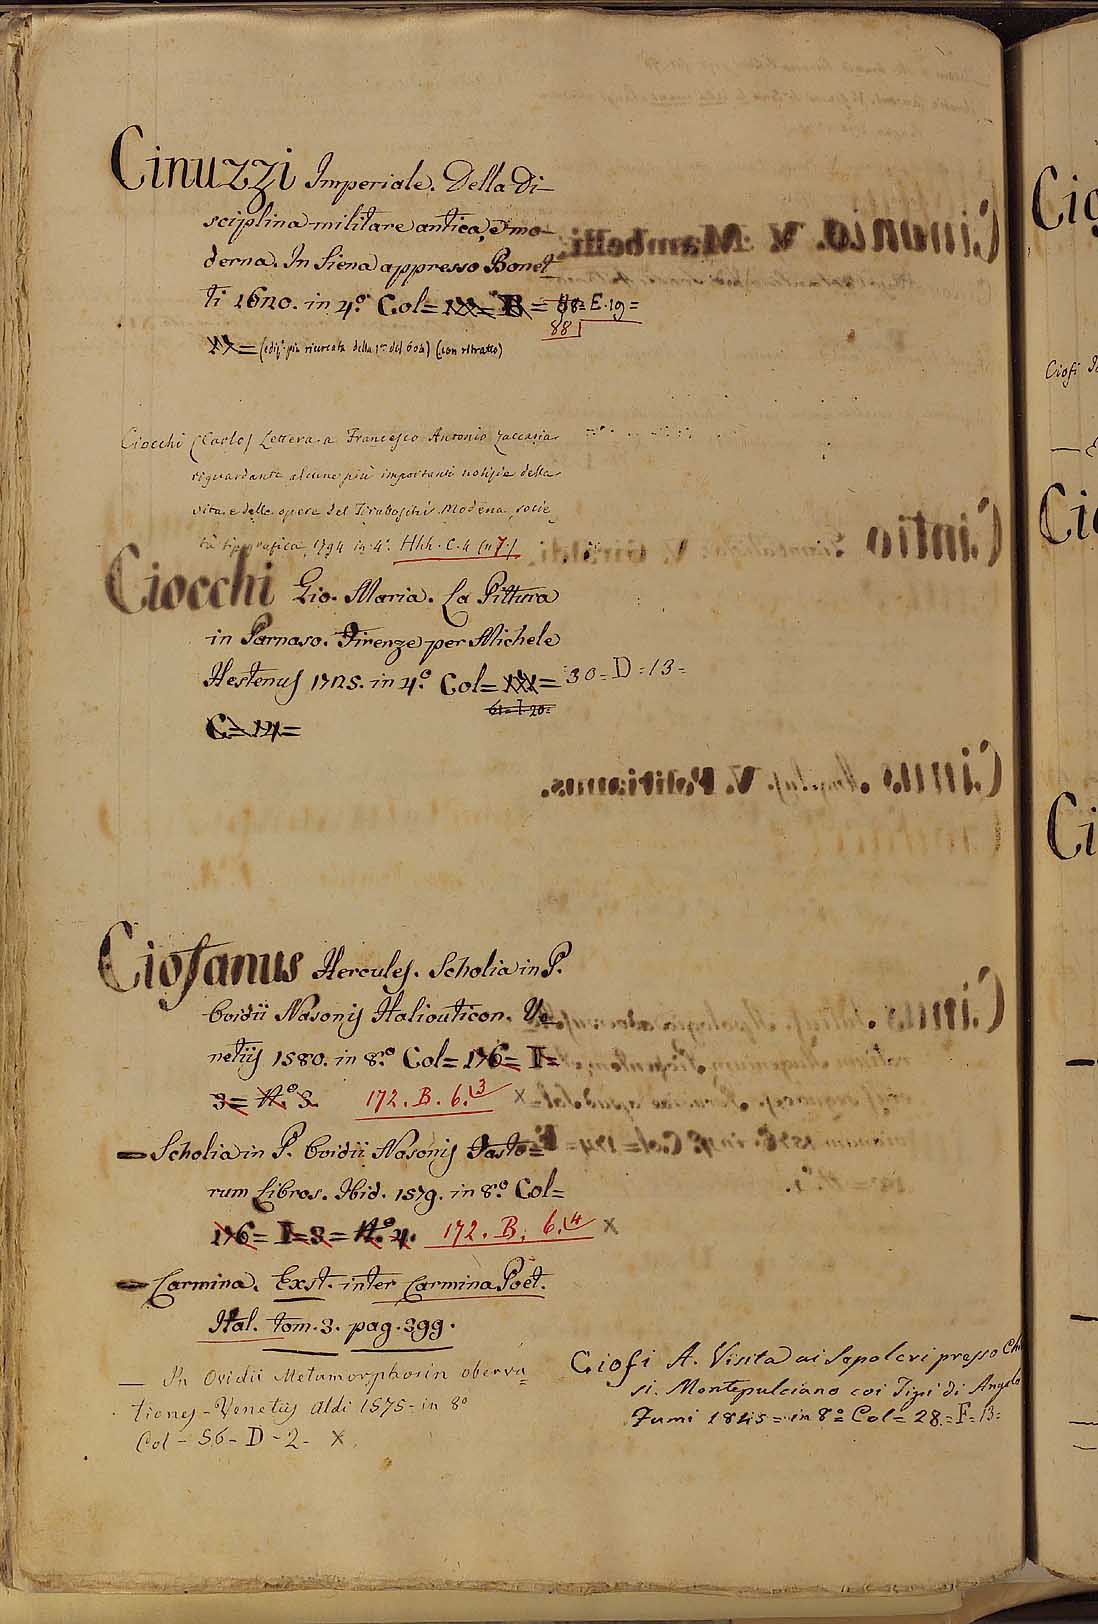 Cinuzzi Imperiale. Della di-
sciplina militare antica, e mo-
derna. In Siena appresso Bonet-
ti 1620. in 4.º Col= = E.19=
881
(ediz. più ricercata della 1ª del 604) (con ritratto)
Ciocchi (Carlo) Lettera a Francesco Antonio Zaccaria
riguardante alcune più importanti notizie della
vita e delle opere del Tiraboschi. Modena, socie
tà tipografica, 1794 in 4º. Hhh. C. 4 (n 7.)
Ciocchi Gio. Maria. La Pittura
in Parnaso. Firenze per Michele
Nestenus 1725. in 4.º Col= = 30=D=13=
61=I=20=
C=14=
Ciofanus Hercules. Scholia in P.
Ovidii Nasonis Halieuticon. Ve-
netiis 1580. in 8.º Col= 176= I=
3= N.º 3. 172. B. 6. 3 x
— Scholia in P. Ovidii Nasonis Fasto=
rum Libros. Ibid. 1579. in 8.º Col=
176= I=3= N.º 4. 172. B. 6. 4 x
— Carmina. Exst. inter Carmina Poët.
Ital. tom. 3. pag. 399.
— In Ovidii Metamorphosin observa=
tiones - Venetiis Aldi 1575 - in 8º
Col - 56 - D - 2 - x
Ciofi A. Visita ai Sepolcri presso Chiu
si. Montepulciano coi Tipi di Angelo
Fumi 1845 = in 8º = Col = 28 = F = 13=
Cio
Ciofi
Cio
Ci